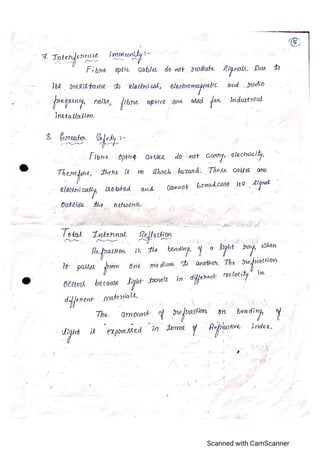 5
7. Interference immunity :-
Fibre optic cables do not radiate signals. Due to
its resistance to electrical, electromagnetic and radio
frequency noise, fibre optics are used for Industrial
installation.
8. Greater Safety :-
Fibre Optic cables do not carry electricity,
Therefore, there is no shock hazard. These cables are
electrically isolated and cannot broadcast its signal
outside the network.
Total Internal Reflection
Refraction is the bending of a light ray, when
it passes from one medium to another. The refraction
occurs because light travels in different velocity in
different materials.
The amount of refraction or bending of
light is expressed in terms of Refractive index.
Scanned with CamScanner